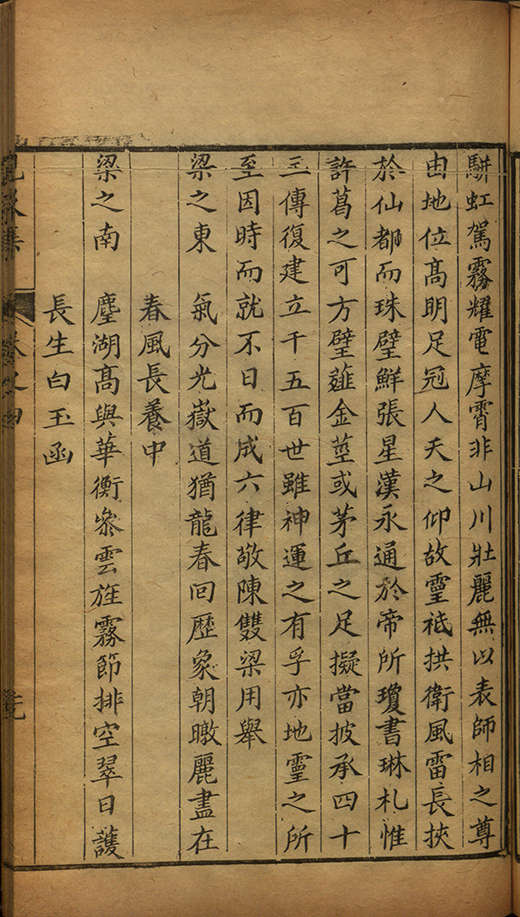 駢虹駕霧耀電摩霄非山川壯麗無以表師相之尊
由地位髙明足冠人天之仰故靈祗拱衛風雷長挾
於仙都而珠璧鮮張星漢永通於帝所瓊書琳札惟
許葛之可方璧薤金莖或茅丘之足擬當披承四十
三傳復建立千五百世雖神運之有孚亦地靈之所
至因時而就不日而成六律敬陳雙梁用舉
梁之東　氣分光嶽道猶龍春回歷象朝暾麗盡在
春風長養中
梁之南　塵湖髙與華衡叅雲旌霧節排空翠日護
長生白玉函
卷之四